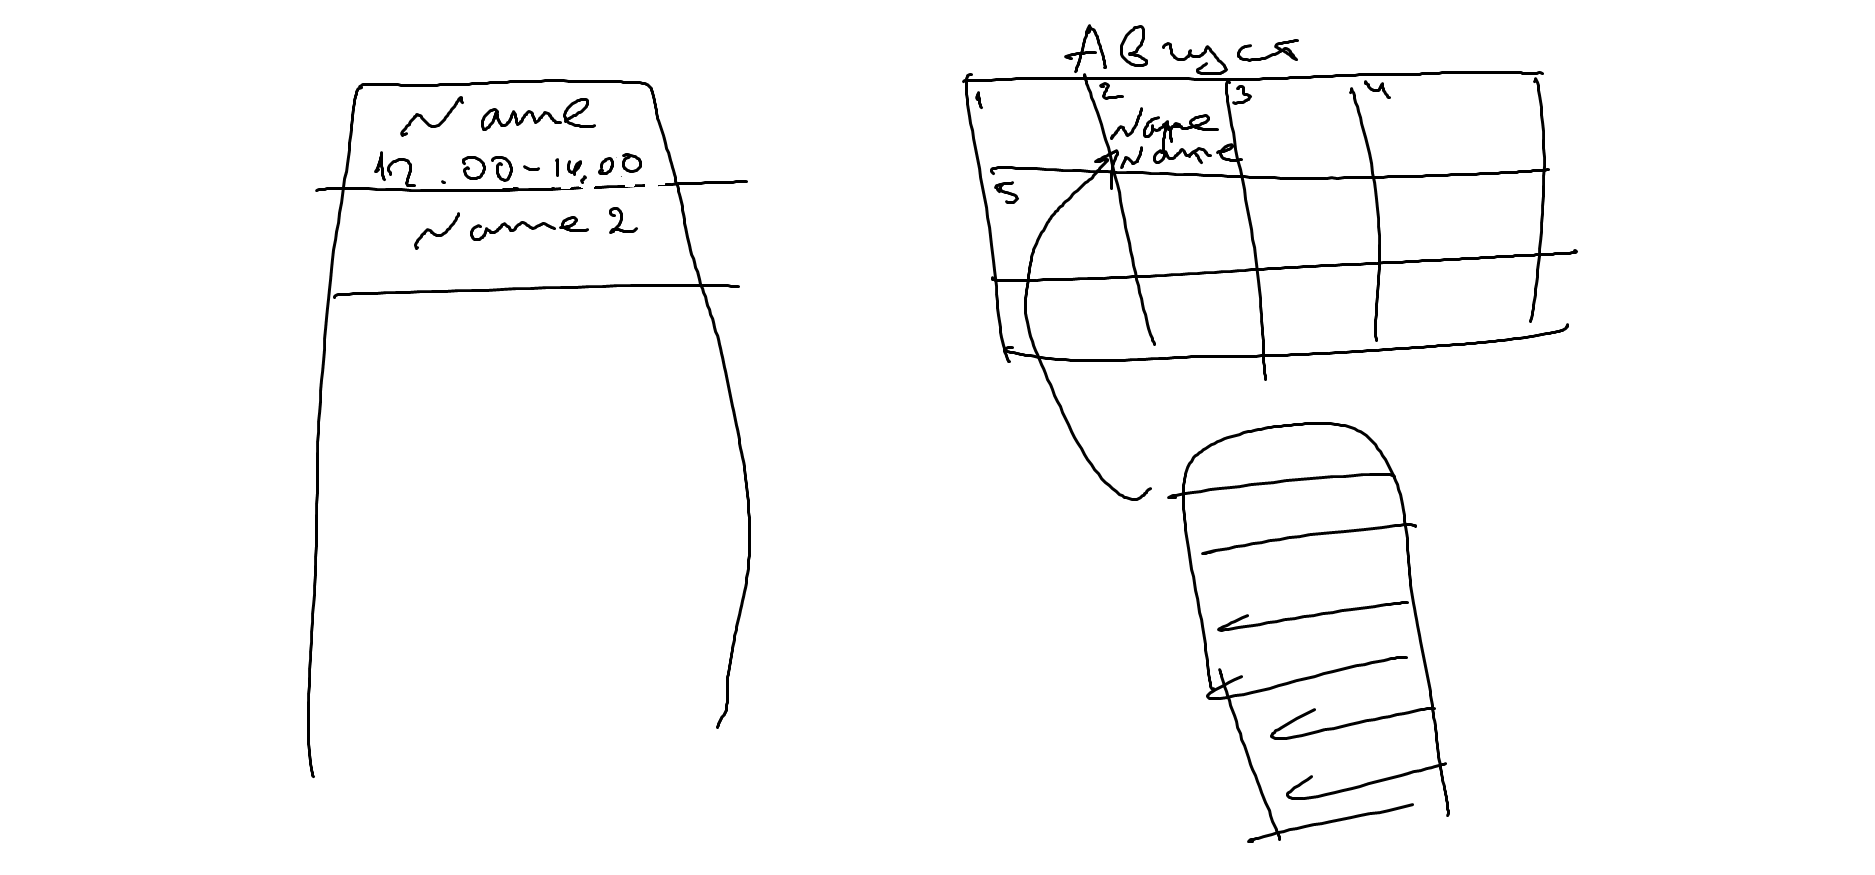 Name
12.00-14.00
Name 2
Август
1 2 3 4
Name
Name
5